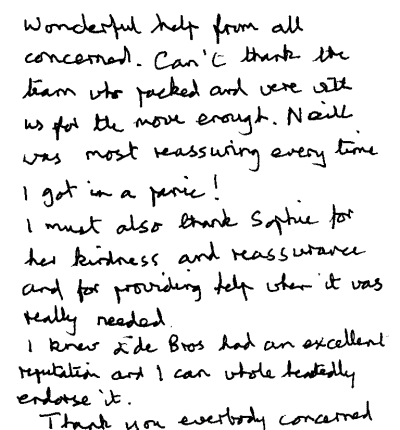 Wonderful help from all
concerned. Can't thank the
team who packed and were with
us for the move enough. Neill
was most reassuring every time
I got in a panic!
I must also thank Sophie for
her kindness and reassurance
and for providing help when it was
really needed.
I knew Bros had an excellent
reputation and I can whole heatedly
endorse it.
Thank you everbody concerned